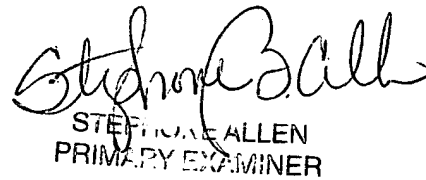 Stephone B. Allen
STEPHONE ALLEN
PRIMARY EXAMINER